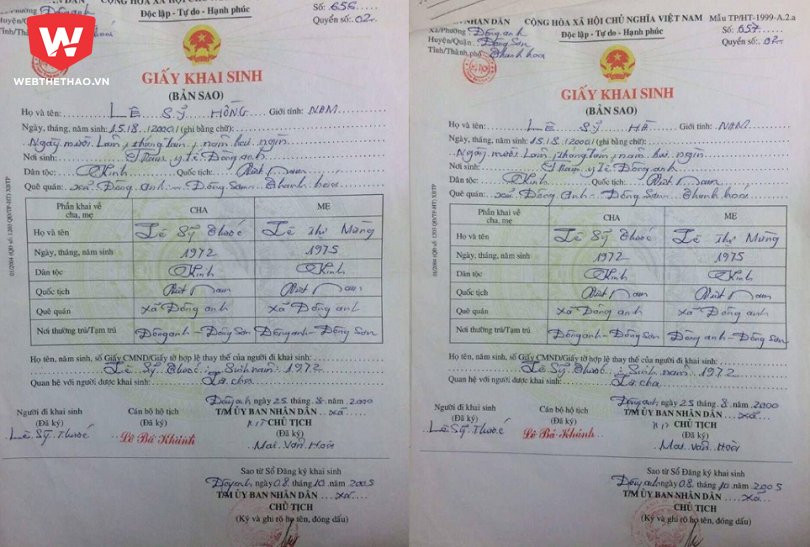 WEBTHETHAO.VN
CỘNG HÒA XÃ HỘI CHỦ NGHĨA VIỆT NAM
Số: 656
Xã/Phường Đông anh
Độc lập - Tự do - Hạnh phúc
Quyển số: 02
GIẤY KHAI SINH
(BẢN SAO)
Họ và tên: LÊ SỸ HỒNG Giới tính: NAM
Ngày, tháng, năm sinh: 15.1.8.1.2000 (ghi bằng chữ):
Ngày mười Lăm, tháng tám, năm hai ngìn
Nơi sinh: Trạm y tế Đông anh
Dân tộc: Kinh Quốc tịch: Việt Nam
Quê quán: xã Đông Anh - Đông Sơn - Thanh hoá
Phần khai về cha, mẹ CHA MẸ
Họ và tên Lê Sỹ Thuốc Lê Thị Mừng
Ngày, tháng, năm sinh 1972 1975
Dân tộc Kinh Kinh
Quốc tịch Việt Nam Việt Nam
Quê quán xã Đông anh xã Đông anh
Nơi thường trú/Tạm trú Đông anh - Đông Sơn Đông anh - Đông Sơn
Họ tên, năm sinh, số Giấy CMND/Giấy tờ hợp lệ thay thế của người đi khai sinh:
Lê Sỹ Thuốc : Sinh năm : 1972
Quan hệ với người được khai sinh: Là cha
Đông anh ngày 25 tháng 8 năm 2000
Người đi khai sinh Cán bộ hộ tịch T/M ỦY BAN NHÂN DÂN xã
(Đã ký) (Đã ký) CHỦ TỊCH
Lê Sỹ Thuốc Lê Bá Khánh (Đã ký)
Mai Văn Hoài
Sao từ Sổ Đăng ký khai sinh
Đông anh ngày 08 tháng 10 năm 2005
T/M ỦY BAN NHÂN DÂN xã
CHỦ TỊCH
(Ký và ghi rõ họ tên, đóng dấu)
NHÂN DÂN CỘNG HÒA XÃ HỘI CHỦ NGHĨA VIỆT NAM Mẫu TP/HT-1999-A.2.a
Xã/Phường Đông anh Độc lập - Tự do - Hạnh phúc Số: 657
Huyện/Quận Đông Sơn Quyển số: 02
Tỉnh/Thành phố Thanh hoá
GIẤY KHAI SINH
(BẢN SAO)
Họ và tên: LÊ SỸ HÀ Giới tính: NAM
Ngày, tháng, năm sinh: 15.1.8.1.2000 (ghi bằng chữ):
Ngày mười Lăm, tháng tám, năm hai ngìn
Nơi sinh: Trạm y tế Đông anh
Dân tộc: Kinh Quốc tịch: Việt Nam
Quê quán: xã Đông Anh - Đông Sơn - Thanh hoá
Phần khai về cha, mẹ CHA MẸ
Họ và tên Lê Sỹ Thuốc Lê Thị Mừng
Ngày, tháng, năm sinh 1972 1975
Dân tộc Kinh Kinh
Quốc tịch Việt Nam Việt Nam
Quê quán xã Đông anh xã Đông anh
Nơi thường trú/Tạm trú Đông anh - Đông Sơn Đông anh - Đông Sơn
Họ tên, năm sinh, số Giấy CMND/Giấy tờ hợp lệ thay thế của người đi khai sinh:
Lê Sỹ Thuốc : Sinh năm 1972
Quan hệ với người được khai sinh: Là cha
Đông anh ngày 25 tháng 8 năm 2000
Người đi khai sinh Cán bộ hộ tịch T/M ỦY BAN NHÂN DÂN xã
(Đã ký) (Đã ký) CHỦ TỊCH
Lê Sỹ Thuốc Lê Bá Khánh (Đã ký)
Mai Văn Hoài
Sao từ Sổ Đăng ký khai sinh
Đông anh ngày 08 tháng 10 năm 2005
T/M ỦY BAN NHÂN DÂN xã
CHỦ TỊCH
(Ký và ghi rõ họ tên, đóng dấu)